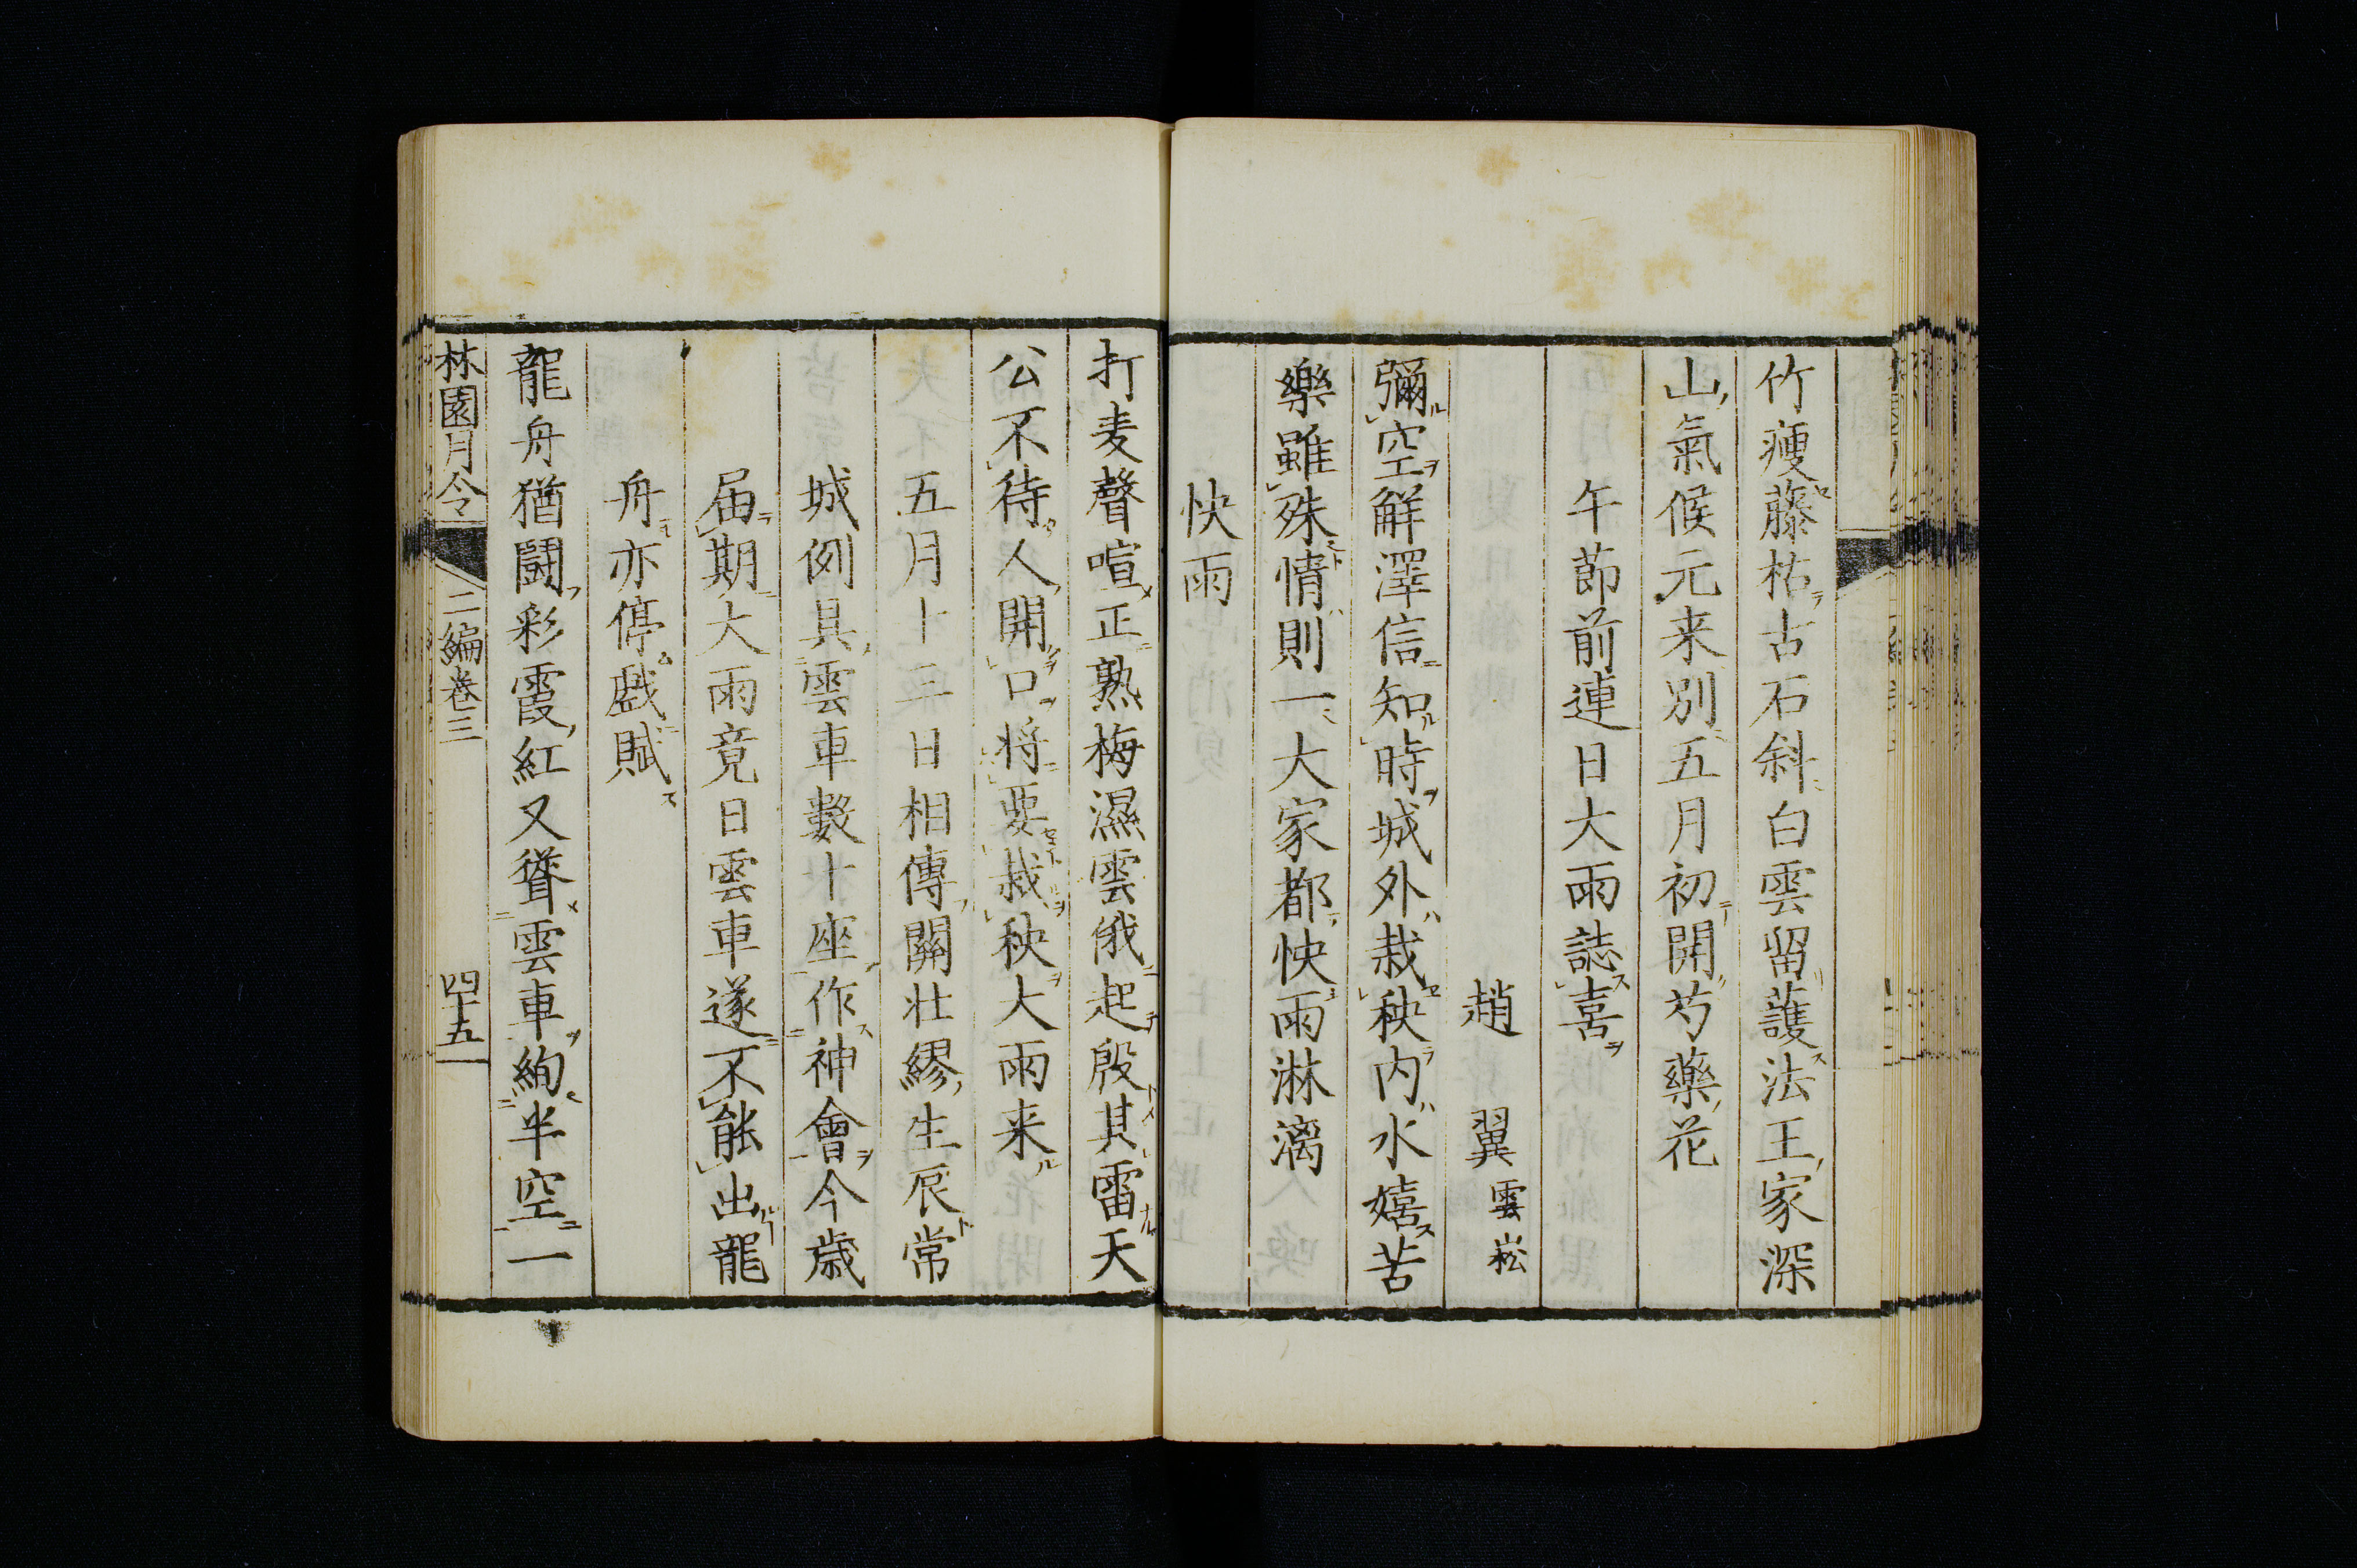 竹瘦藤枯古石斜白雲留護法王家深
山氣候元来別五月初開芍藥花
午節前連日大雨誌喜
趙翼雲崧
彌空觧澤信知時城外栽秧内水嬉苦
樂雖殊情則一大家都快雨淋漓
快雨
打麦聲喧正熟梅濕雲俄起殷其雷天
公不待人開口将要栽秧大雨来
五月十三日相傳關壮繆生辰常
城例具雲車數十座作神會今歲
届期大雨竟日雲車遂不能出龍
舟亦停戲賦
龍舟猶闘彩霞紅又聳雲車絢半空一
林園月令 二編卷三 四十五